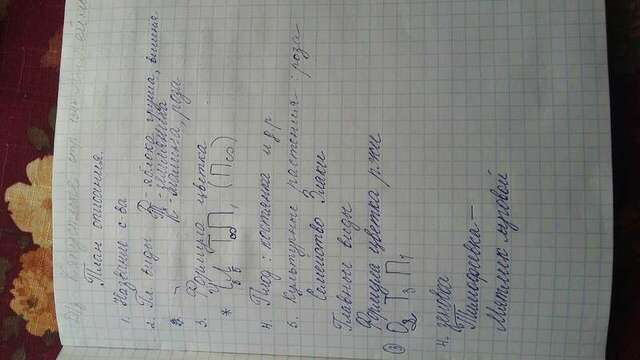 План описания.
1. Название с-ва
2. Гл. виды Д - яблоня, груша, вишня.
земляника
К - малина, роза
3. Формула цветка
* Ч5 Л5 Т∞ П1 (П∞)
4. Плод: костянка и др
5. Культурные растения: роза
Семейство Злаки
Главные виды
Формула цветка ржи
③ О2 Т3 П1
4. зерновка
Тимофеевка -
Мятлик луговой